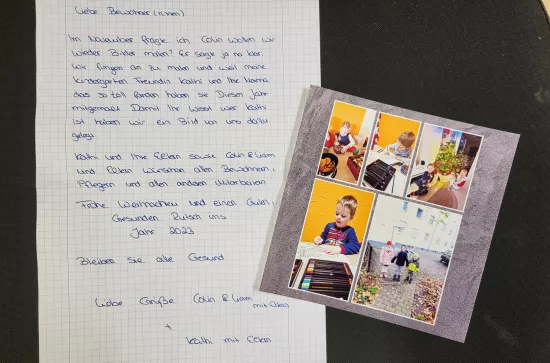 Liebe Bewohner(innen)
Im November fragte ich Colin wollen wir
wieder Bilder malen? Er sagte ja na klar.
Wir fingen an zu malen und weil meine
Kindergarten Freundin Kathi und Ihre Mama
das so toll fanden haben sie Dieses Jahr
mitgemacht. Damit Ihr wisst wer Kathi
ist haben wir ein Bild von uns dazu
gelegt.
Kathi und Ihre Eltern sowie Colin & Liam
und Eltern wünschen allen Bewohnern,
Pflegern und allen anderen Mitarbeitern
Frohe Weihnachten und einen Guten,
Gesunden Rutsch ins
Jahr 2023
Bleiben Sie alle Gesund
Liebe Grüße Colin & Liam
mit Eltern
+
Kathi mit Eltern